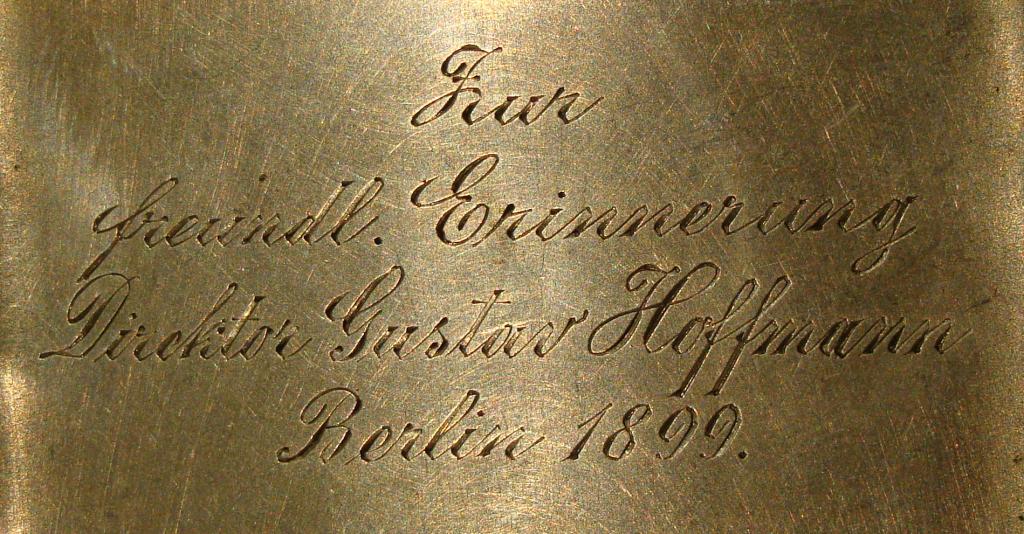 Zur
freundl. Erinnerung
Direktor Gustav Hoffmann
Berlin 1899.